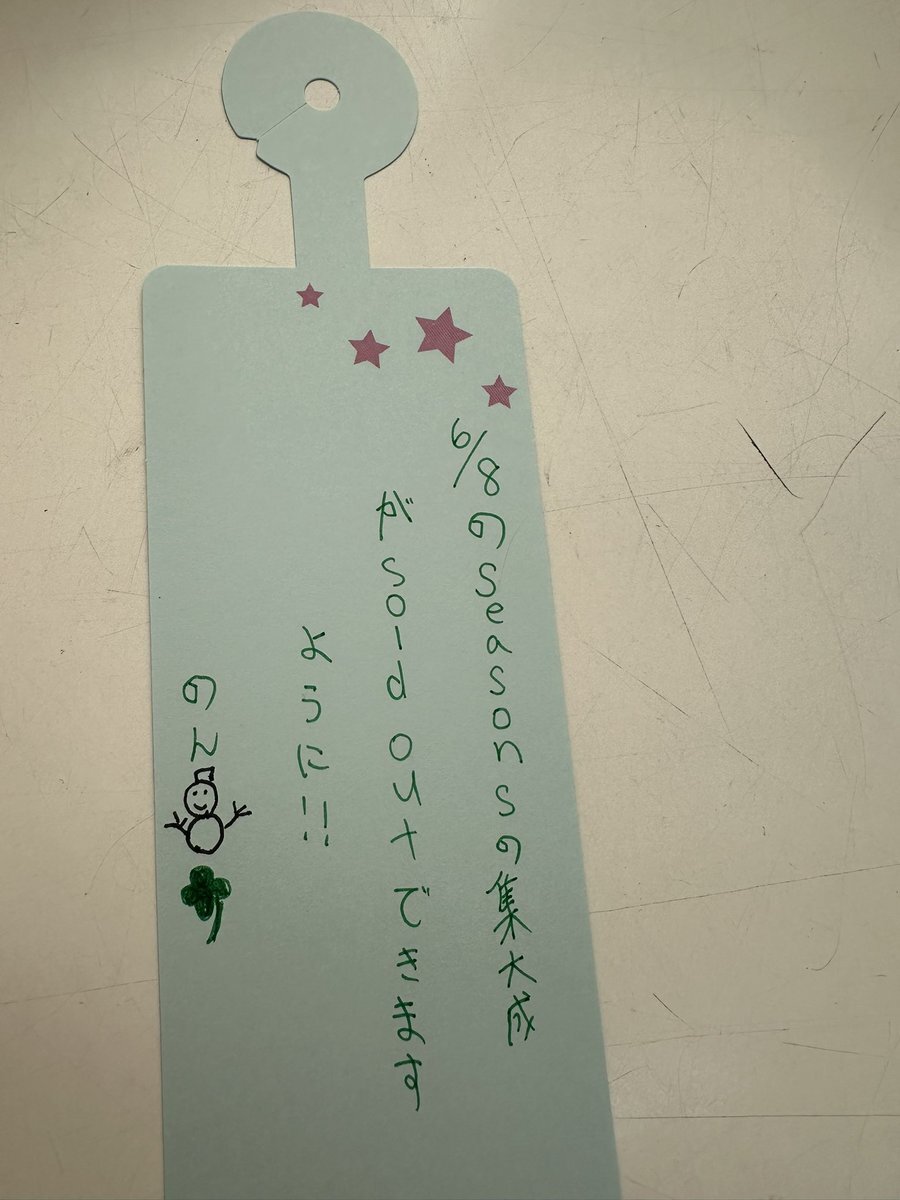 6/8のseasonsの集大成
がsold outできます
ように!!
のん